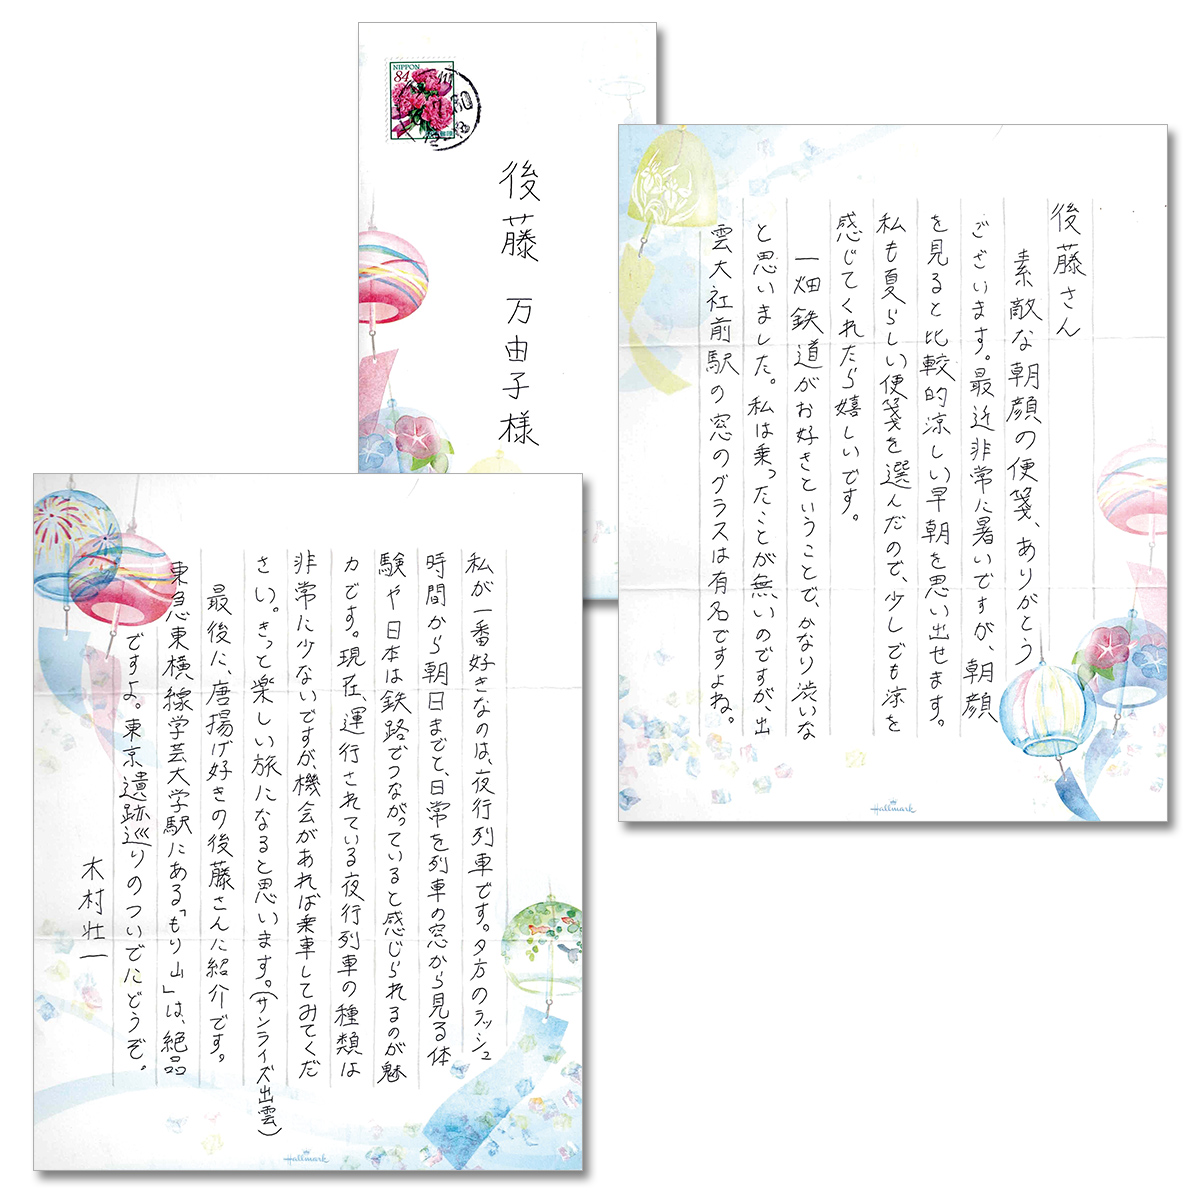 NIPPON
84
後藤 万由子様
後藤さん
素敵な朝顔の便箋、ありがとう
ございます。最近非常に暑いですが、朝顔
を見ると比較的涼しい早朝を思い出せます。
私も夏らしい便箋を選んだので、少しでも涼を
感じてくれたら嬉しいです。
一畑鉄道がお好きということで、かなり渋いな
と思いました。私は乗ったことが無いのですが、出
雲大社前駅の窓のグラスは有名ですよね。
Hallmark
私が一番好きなのは、夜行列車です。夕方のラッシュ
時間から朝日までと、日常を列車の窓から見る体
験や日本は鉄路でつながっていると感じられるのが魅
力です。現在、運行されている夜行列車の種類は
非常に少ないですが、機会があれば乗車してみてくだ
さい。きっと楽しい旅になると思います。(サンライズ出雲)
最後に、唐揚げ好きの後藤さんに紹介です。
東急東横線学芸大学駅にある「もり山」は、絶品
ですよ。東京遺跡巡りのついでにどうぞ。
木村壮一
Hallmark